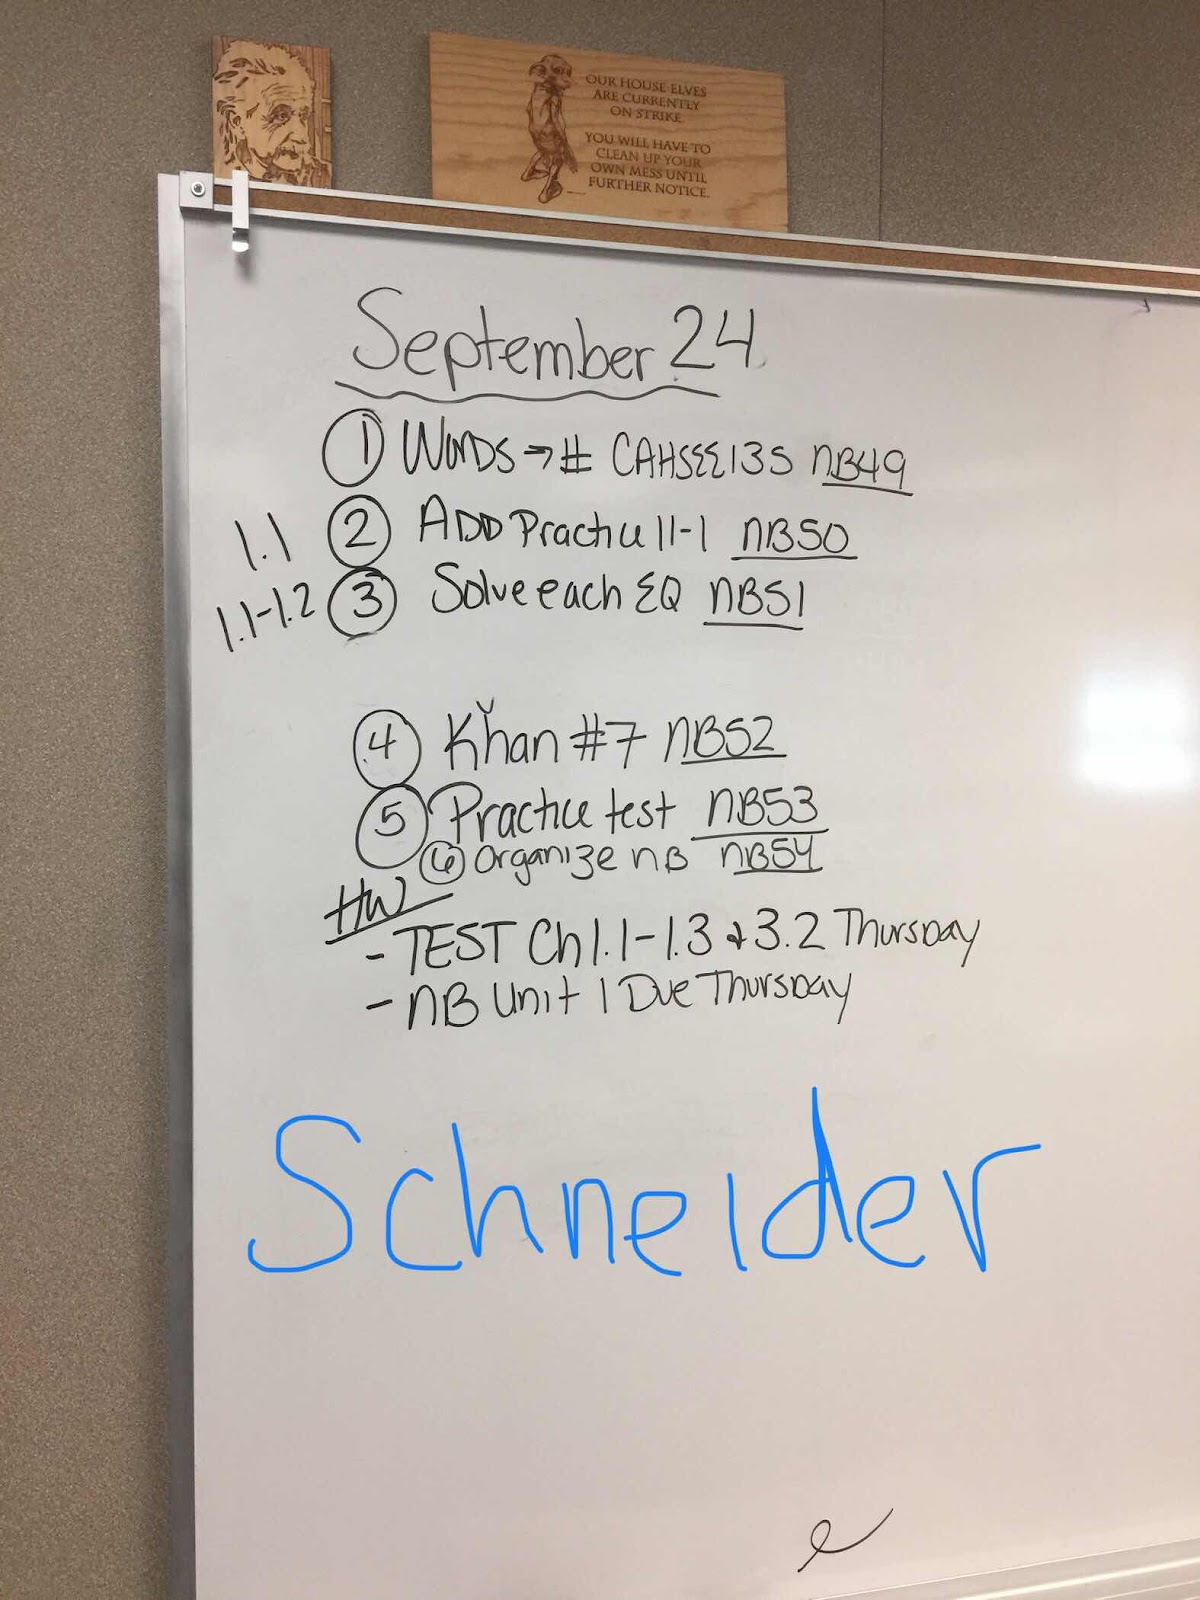 OUR HOUSE ELVES
ARE CURRENTLY
ON STRIKE
YOU WILL HAVE TO
CLEAN UP YOUR
OWN MESS UNTIL
FURTHER NOTICE.
September 24
1 Words → # CAHSEE 135 NB49
1.1 2 ADD Practice 11-1 NB50
1.1-1.2 3 Solve each EQ NB51
4 Khan #7 NB52
5 Practice test NB53
6 Organize NB NB54
HW
- TEST Ch 1.1-1.3 & 3.2 Thursday
- NB Unit 1 Due Thursday
Schneider